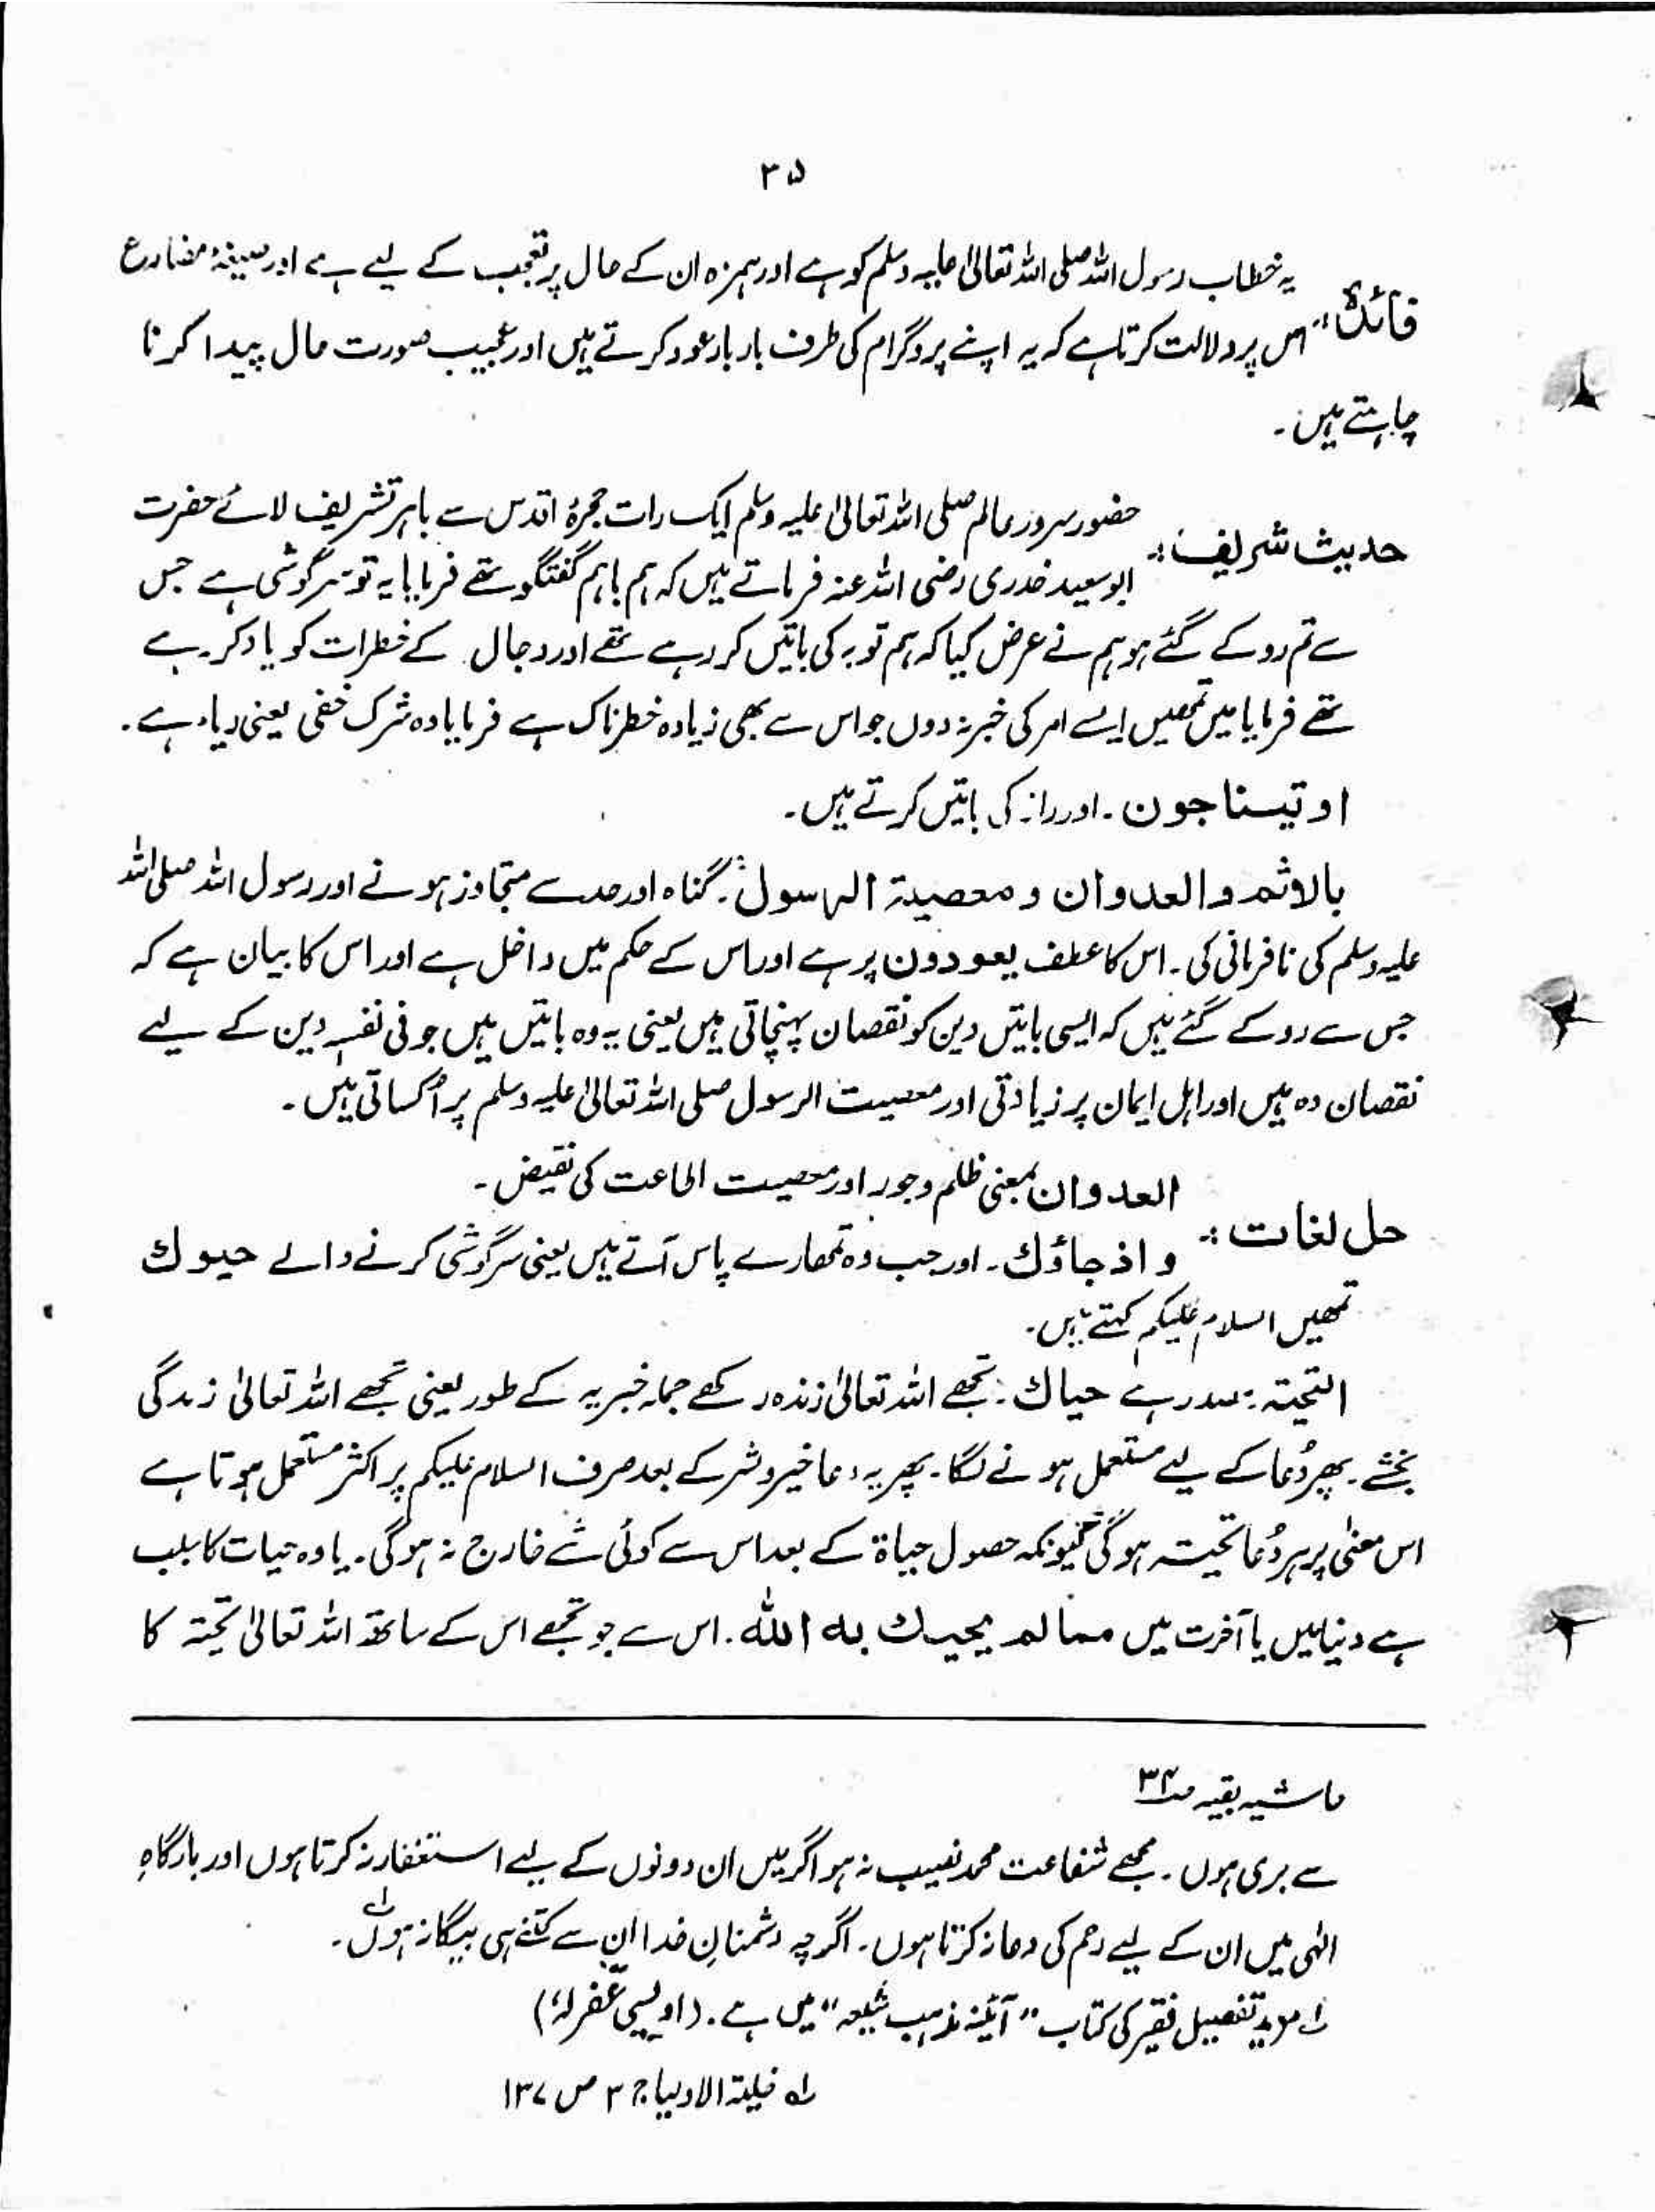 ۳۵
یہ خطاب رسول اللہ صلی اللہ تعالیٰ علیہ وسلم کو ہے اور ہمزہ ان کے حال پر تعجب کے لیے ہے اور صیغۂ مضارع
فائدہ: اس پر دلالت کرتا ہے کہ یہ اپنے پروگرام کی طرف بار بار عود کرتے ہیں اور عجیب صورت حال پیدا کرنا
چاہتے ہیں۔
حضور سرور عالم صلی اللہ تعالیٰ علیہ وسلم ایک رات حجرۂ اقدس سے باہر تشریف لائے حضرت
حدیث شریف: ابو سعید خدری رضی اللہ عنہ فرماتے ہیں کہ ہم باہم گفتگو تھے فرمایا یہ تو سرگوشی ہے جس
سے تم روکے گئے ہو ہم نے عرض کیا کہ ہم توبہ کی باتیں کر رہے تھے اور دجال کے خطرات کو یاد کر رہے
تھے فرمایا میں تمھیں ایسے امر کی خبر نہ دوں جو اس سے بھی زیادہ خطرناک ہے فرمایا وہ شرک خفی یعنی ریاء ہے۔
او تیسنا جون۔ اور راز کی باتیں کرتے ہیں۔
بالاثم والعدوان و معصیۃ الرسول: گناہ اور حد سے متجاوز ہونے اور رسول اللہ صلی اللہ
علیہ وسلم کی نافرمانی کی۔ اس کا عطف یعودون پر ہے اور اس کے حکم میں داخل ہے اور اس کا بیان ہے کہ
جس سے روکے گئے ہیں کہ ایسی باتیں دین کو نقصان پہنچاتی ہیں یعنی یہ وہ باتیں ہیں جو فی نفسہٖ دین کے لیے
نقصان دہ ہیں اور اہل ایمان پر زیادتی اور معصیت الرسول صلی اللہ تعالیٰ علیہ وسلم پر اُکساتی ہیں۔
العدوان بمعنی ظلم وجور اور معصیت اطاعت کی نقیض۔
حل لغات: و اذ جاؤك۔ اور جب وہ تمھارے پاس آتے ہیں یعنی سرگوشی کرنے والے حیوك
تمھیں السلام علیکم کہتے ہیں۔
التحیتہ: مصدر ہے حیاك: تجھے اللہ تعالیٰ زندہ رکھے جملہ خبریہ کے طور یعنی تجھے اللہ تعالیٰ زندگی
بخشے۔ پھر دُعا کے لیے مستعمل ہونے لگا۔ پھر یہ دعا خیر و شر کے بعد صرف السلام علیکم پر اکثر مستعمل ہوتا ہے
اس معنیٰ پر ہر دُعا تحیتہ ہو گی کیونکہ حصول حیاۃ کے بعد اس سے کوئی شے خارج نہ ہوگی۔ یا وہ حیات کا سبب
ہے دنیا میں یا آخرت میں مما لم یحیك به الله۔ اس سے جو تجھے اس کے ساتھ اللہ تعالیٰ تحیتہ کا
حاشیہ بقیہ صـ۳۴
سے بری ہوں۔ مجھے شفاعت محمد نصیب نہ ہو اگر میں ان دونوں کے لیے استغفار نہ کرتا ہوں اور بارگاہِ
الٰہی میں ان کے لیے رحم کی دعا نہ کرتا ہوں۔ اگرچہ دشمنانِ خدا ان سے کتنے ہی بیگانہ ہوں۔
مزید تفصیل فقیر کی کتاب "آئینہ مذہب شیعہ" میں ہے۔ (اویسی غفرلہٗ)
لہ فیلتہ الاولیا ج ۳ ص ۱۳۷